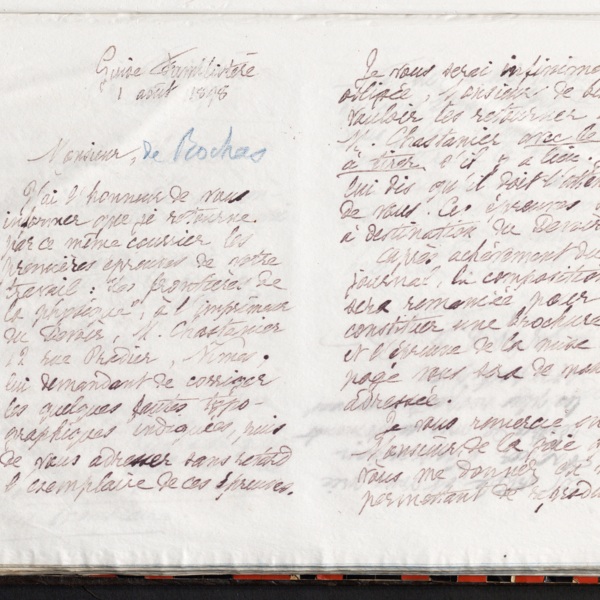 Guise Familistère
1 août 1898
Monsieur, de Rochas
J'ai l'honneur de vous
informer que je retourne
par ce même courrier les
premières épreuves de votre
travail: "Les frontières de
la physique", à l'imprimeur
du Devoir, M. Chastanier
12 rue Pradier, Nîmes.
lui demandant de corriger
les quelques fautes typo-
graphiques indiquées, puis
de vous adresser sans retard
l'exemplaire de ces épreuves.
Je vous serai infiniment
obligée, Monsieur, de
vouloir les retourner
M. Chastanier avec le
à tirer, s'il y a lieu.
lui dis qu'il doit
de vous. Ces épreuves
à destination du Devoir
Après achèvement du
journal, la composition
sera remaniée pour
constituer une brochure
et l'épreuve de la mise
page vous sera de
adressée.
Je vous remercie
Monsieur de la joie
vous me donnez
permettant de